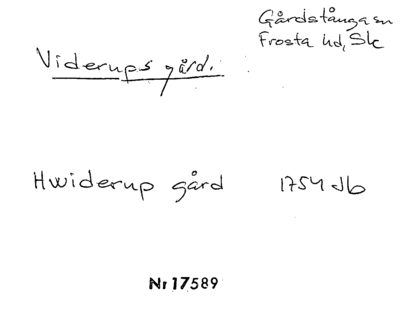 Gårdstånga sn
Frosta hd, Sk
Viderups gård.
Hwiderup gård 1754 db
Nr 17589